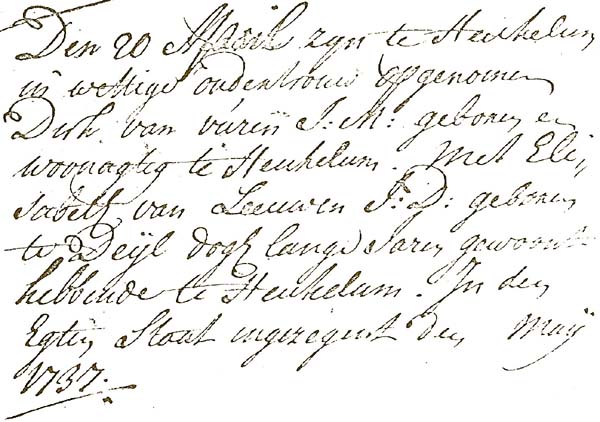 Den 20 April zijn te Heukelum
in wettige ondertrouw opgenomen
Dirk van vúren J: M: geboren en
woonagtig te Heukelum. Met Eli„
sabeth van Leeuwen J: D: geboren
te Deijl dogh lange Jaren gewoont
hebbende te Heukelum. In den
Egten Staat ingezegent den Maij
1737.